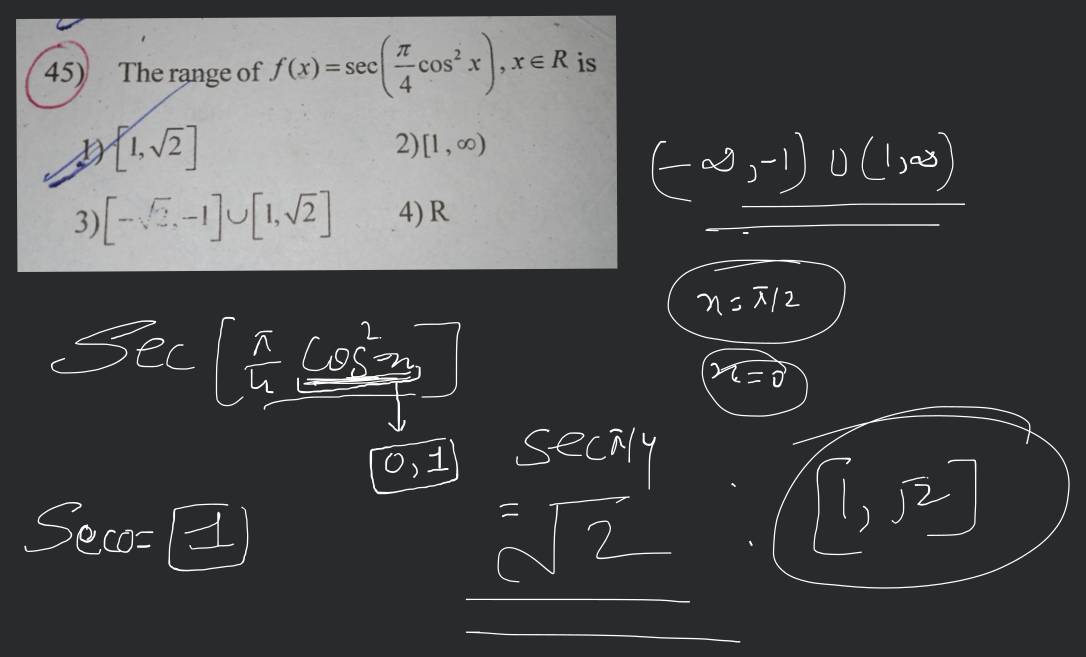 45) The range of f(x) = sec(π/4 cos² x), x ∈ R is
1) [1, √2] 2) [1, ∞)
3) [-√2, -1] ∪ [1, √2] 4) R
(-∞, -1) ∪ (1, ∞)
x = π/2
x = 0
Sec [π/4 cos² x]
0, 1
sec π/4
= √2
Sec 0 = 1
[1, √2]